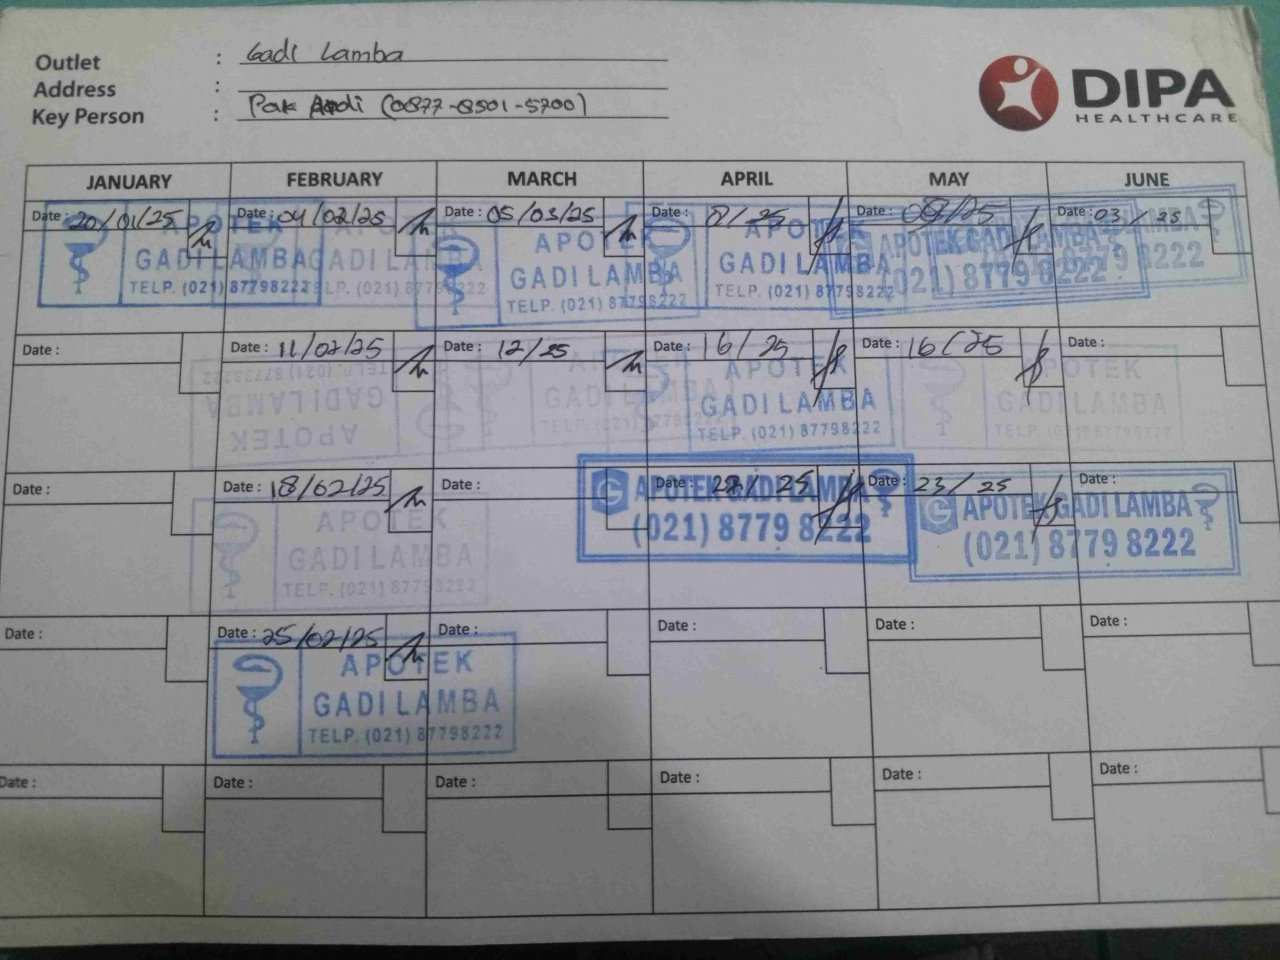 Outlet : Gadi Lamba
Address :
Key Person : Pak Andi (0877-8501-5700)
DIPA
HEALTHCARE
JANUARY FEBRUARY MARCH APRIL MAY JUNE
Date : 20/01/25 Date : 04/02/25 Date : 05/03/25 Date : 8/25 Date : /25 Date : 03/25
APOTEK APOTEK APOTEK APOTEK APOTEK GADI LAMBA
GADI LAMBA GADI LAMBA GADI LAMBA GADI LAMBA (021) 8779 8222
TELP. (021) 87798222 TELP. (021) 87798222 TELP. (021) 87798222
Date : Date : 11/02/25 Date : 12/25 Date : 16/25 Date : 16/25 Date :
APOTEK APOTEK APOTEK
GADI LAMBA GADI LAMBA GADI LAMBA GADI LAMBA
TELP. (021) 87798222 TELP. (021) 87798222
Date : Date : 18/02/25 Date : Date : 25 Date : 23/25 Date :
APOTEK APOTEK GADI LAMBA APOTEK GADI LAMBA
GADI LAMBA (021) 8779 8222 (021) 8779 8222
TELP. (021) 87798222
Date : Date : 25/02/25 Date : Date : Date : Date :
APOTEK
GADI LAMBA
TELP. (021) 87798222
Date : Date : Date : Date : Date : Date :